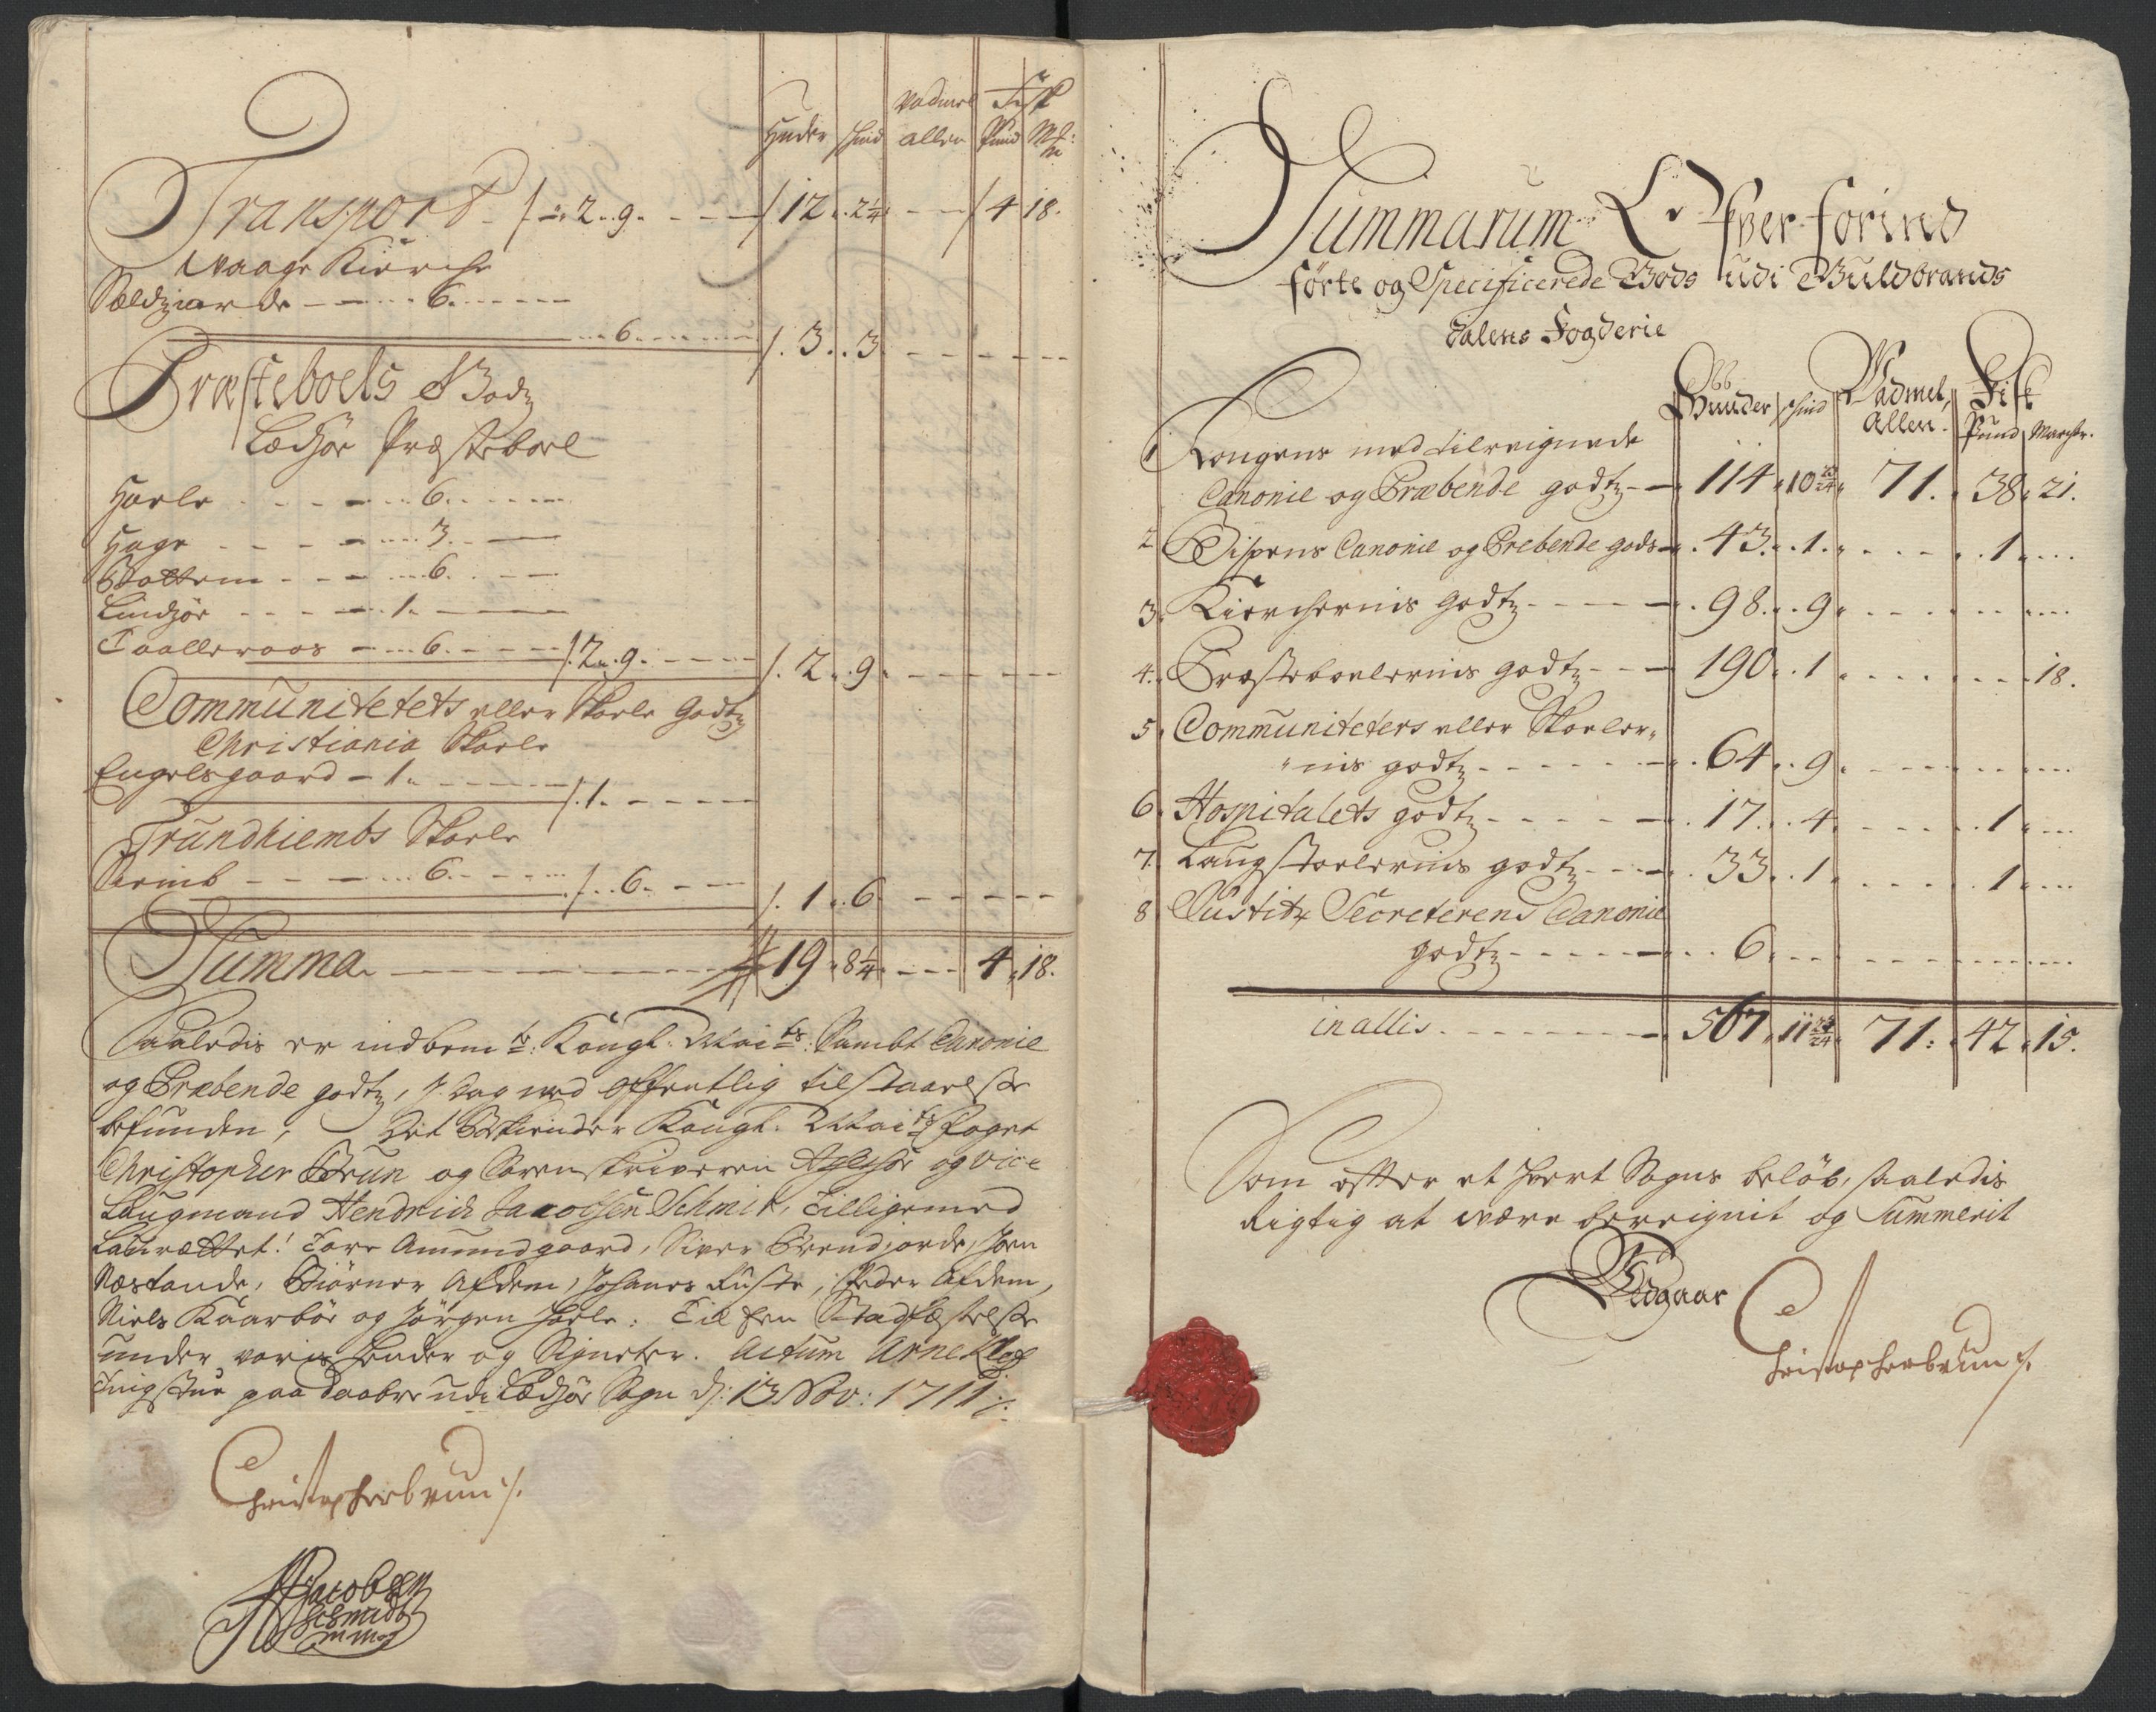 Vadmel Fisk
Huder skind allen Pund Mk:
Transport - /- 2 .. 9. - - - /12 .. 2¼ - - - /4 18.
Waage Kierche
Sældziorde - - - .. 6. - - -
.. 6. - - - /. 3 .. 3 - - - - -
Præsteboels Godz
Ledsøe Præsteboel
Horle - - - - .. 6. - - -
Hage - - - - ... 3. - -
Bottem - - - - ... 6. - -
Lindsøe - - - - . 1. - -
Taalleraas - ... 6. - - - /. 2 .. 9. - - - /. 2 .. 9. - - - - -
Communitetets eller Skole Godz
Christiania Skole
Engelsgaard - 1. - - - /. 1. - - -
Trundhiembs Skole
- - - ... 6. - - - /. .. 6. - - - /. 1 .. 6 - - - - -
Summa - - - 19 . 8¼ - - - 4 . 18.
Saaledis er indbem te: Kongl: Maits: Sambt Canonie
og Præbende godtz, J dag ved offentlig tilstaaelse
befunden, Det Bekiender Kongl: Maits Foget
Christopher Brun og Sorenskriveren Assessor og vice
Laugmand Hendrich Jacobsen Schmit, Tilligemed
Laurættet! Tore Amundgaard, Siver Brendjorde, Joen
Næstande, Biørner Afdem, Johanes Ruste, Peder Afdem,
Niels Kaarbøe og Jørgen Horle: Til den Stadfæstelse
under voris hender og Signeter. Actum Arneklef
Tingstue paa Daabre udi Ledsøe Sogn d: 13 Nov: 1711 ./.
Christopherbrun ./.
HJacobsen
Schmidt
mmp
Summarum Ofver forind
førte og Specificerede Gods udi Guldbrands
dalens Fogderie
Huuder skind Vadmel, Allen. Fisk Pund Marcher.
1 Kongens med tilreignede
Canonie og Præbende godtz - - 114 . 10 23/24 . 71. . 38 . 21.
2 Bispens Canonie og Prebende gods - . 43 . . 1 . - - - . 1 . ...
3. Kierchernis godtz - - - - . 98 . . 9 . - - - - ...
4. Præsteboelernis godtz - - - 190 . . 1 . - - - - 18.
5. Communiteters eller Skoler,,
,,nis godtz - - - - - . 64 . . 9 . - - - - ...
6. Hospitalets godtz - - - - . 17 . . 4 . - - - . 1 . ...
7. Laugstoelernis godtz - - - . 33 . . 1 . - - - . 1 . ...
8 Justitz Secreterens Canonie
godtz - - - - - . . 6 . - - - - ...
in allis - - - - - - 567 . 11 23/24 . 71: . 42 . 15.
Som efter et hvert Sogns beløb, saaledis
Rigtig at være bereignit og Summerit
Christopherbrun ./.